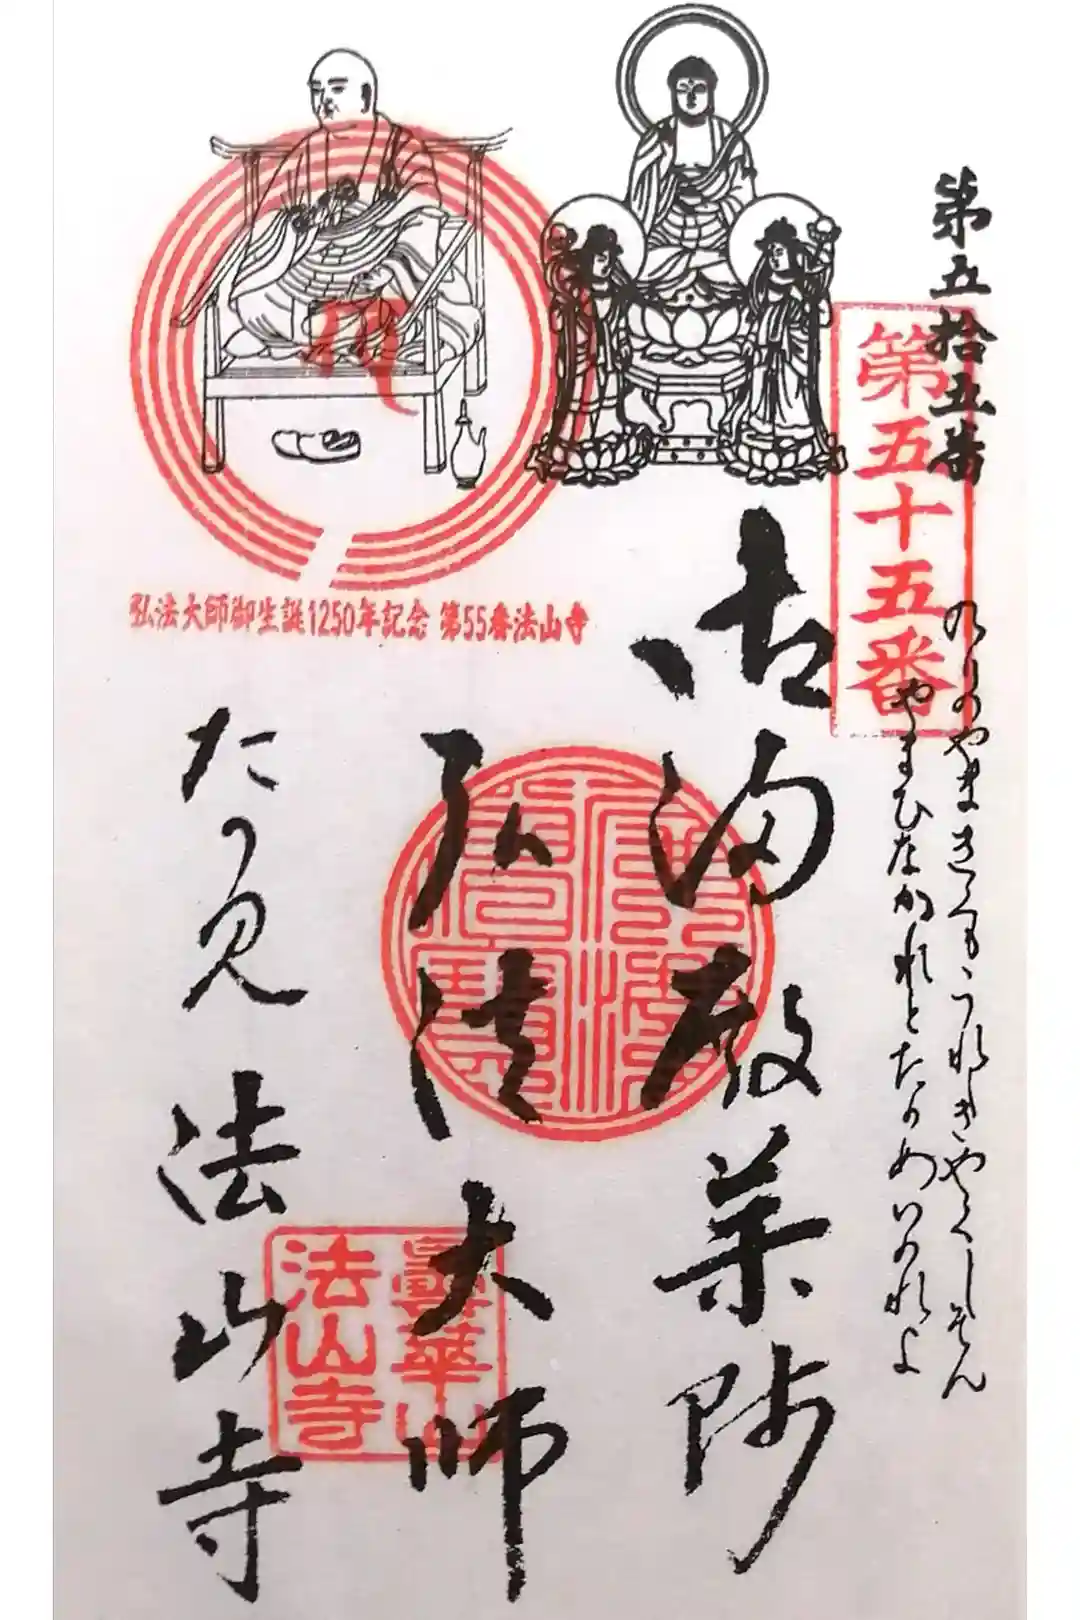 第五拾五番
第五十五番
のりのやまきくもうれしきやくしそん
やまひなかれとたのめいのれよ
御湯殿薬師
弘法大師
法山寺
弘法大師御生誕1250年記念 第55番法山寺
曇華山
法山寺